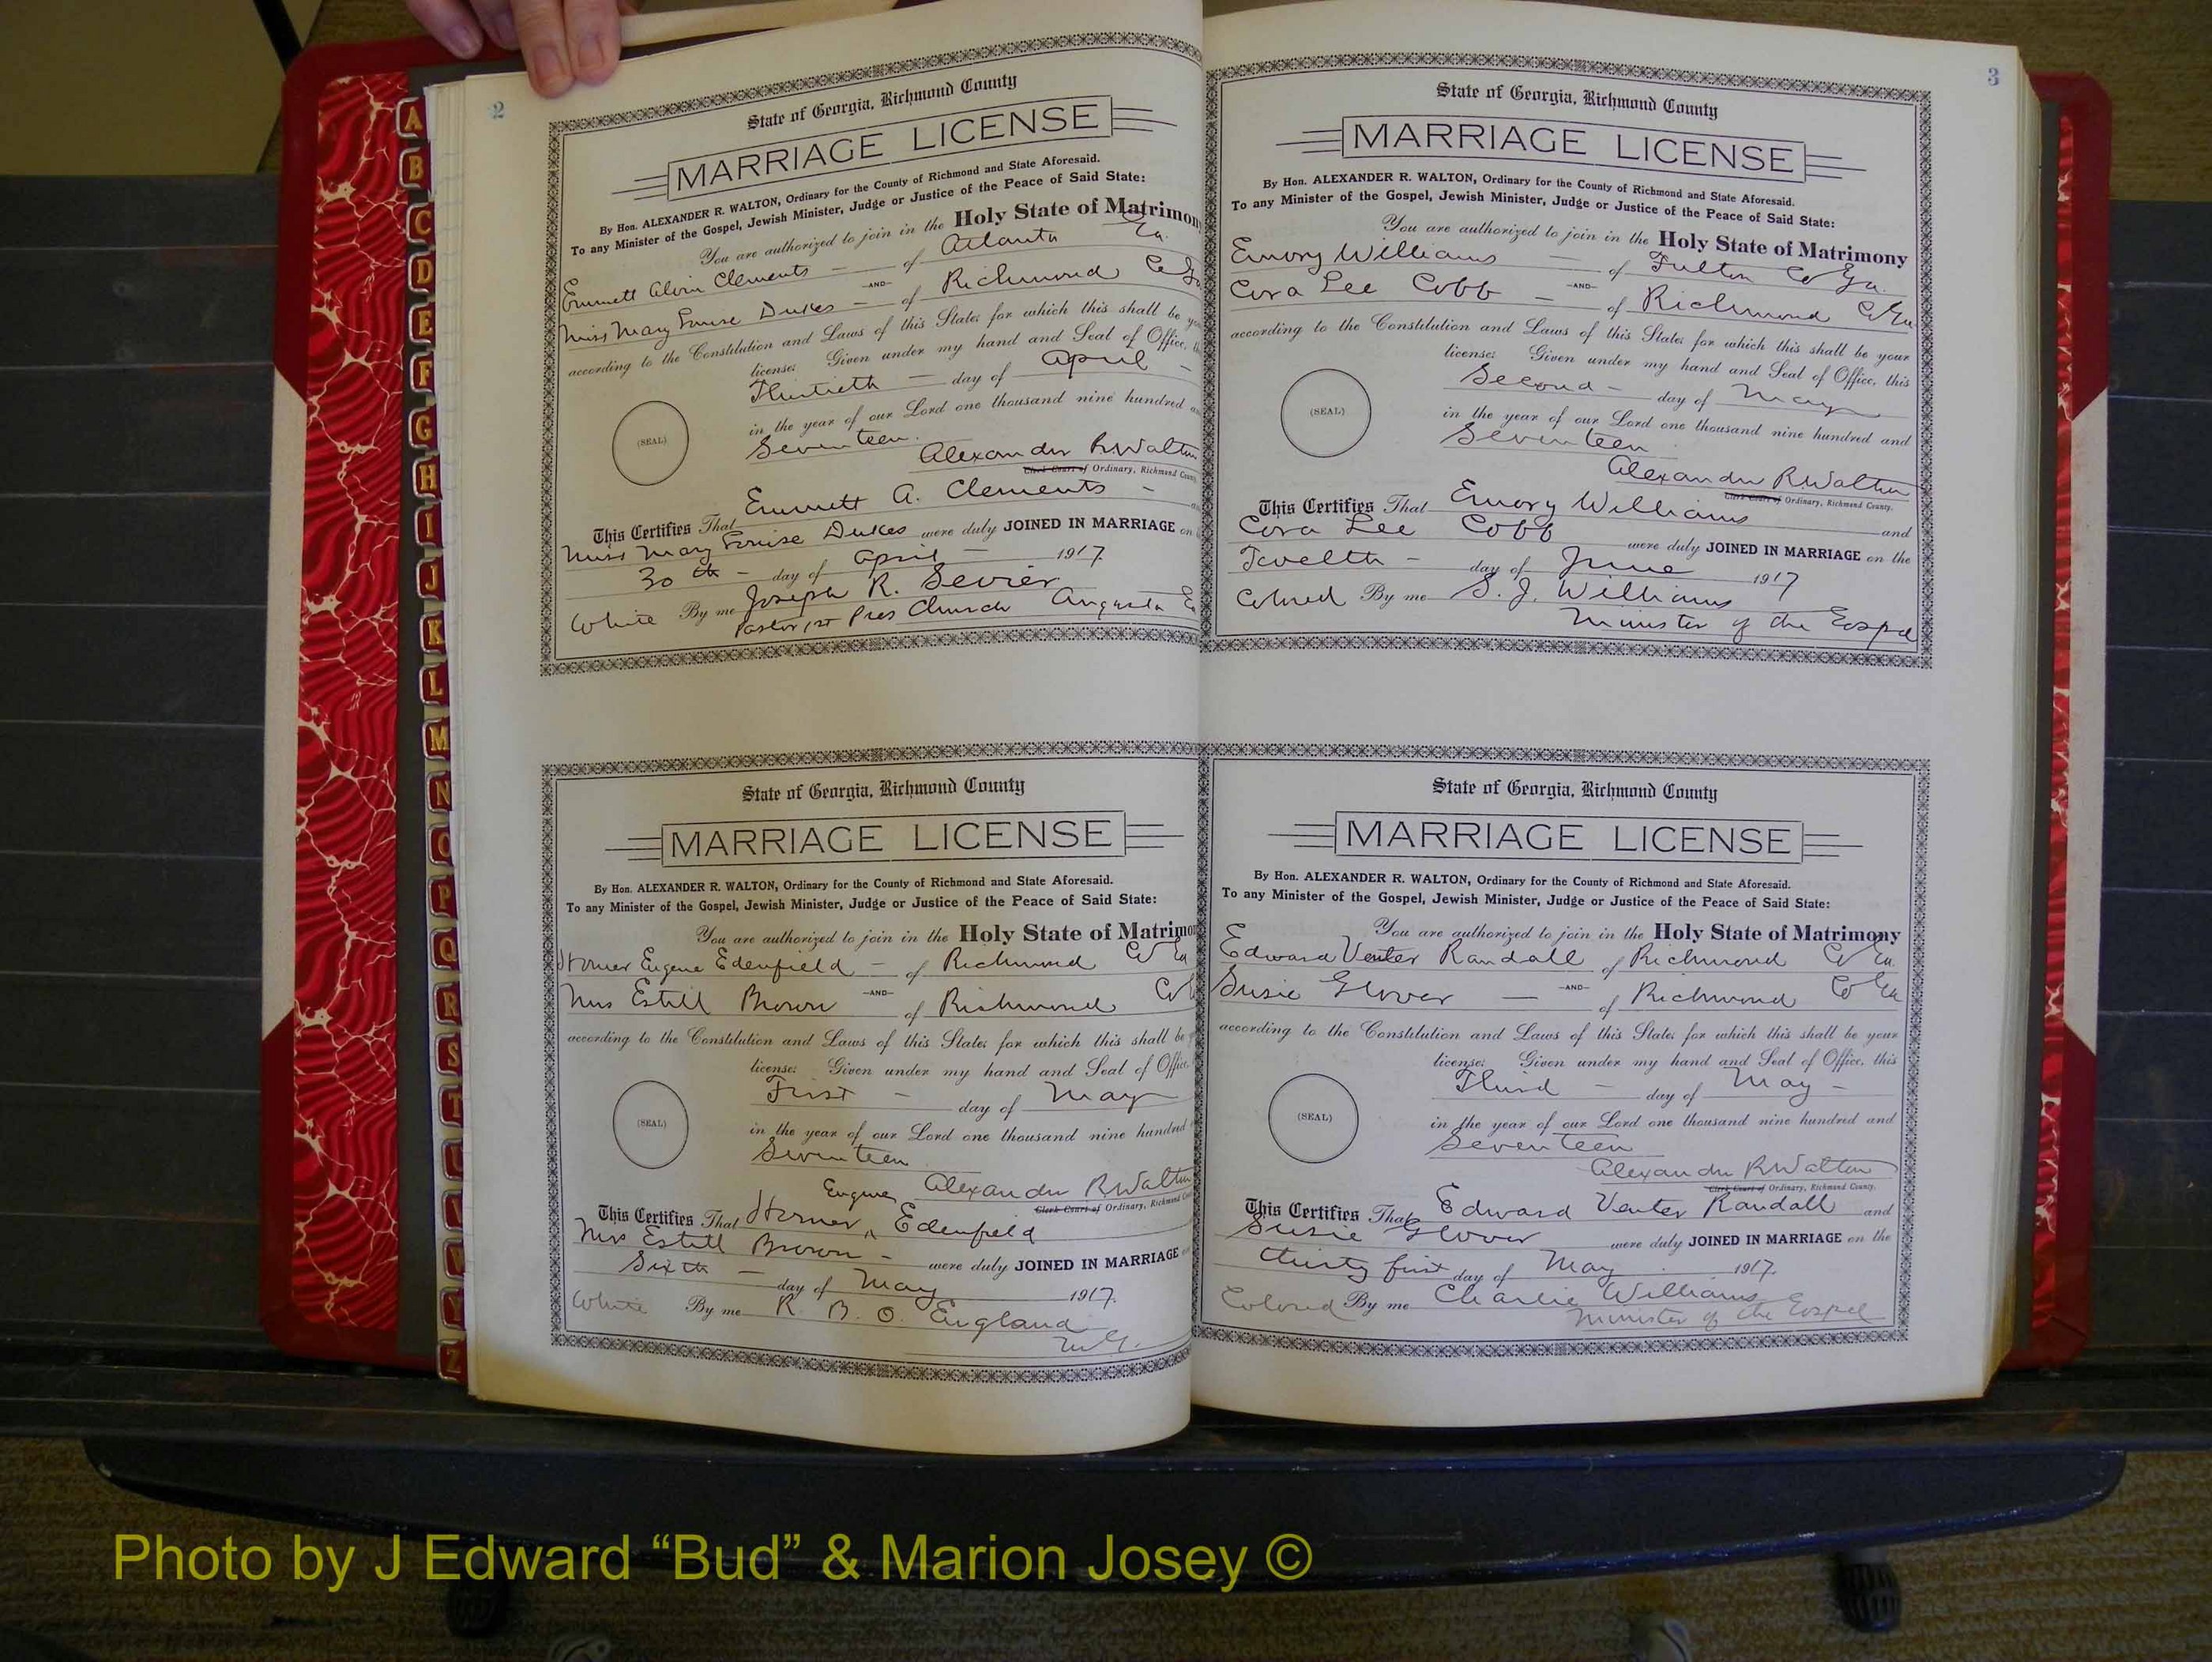 2
State of Georgia, Richmond County
MARRIAGE LICENSE
By Hon. ALEXANDER R. WALTON, Ordinary for the County of Richmond and State Aforesaid.
To any Minister of the Gospel, Jewish Minister, Judge or Justice of the Peace of Said State:
You are authorized to join in the Holy State of Matrimony
Emmett Alvin Clements - of Atlanta Ga.
-AND-
Miss Mary Louise Dukes - of Richmond Co Ga
according to the Constitution and Laws of this State; for which this shall be
license: Given under my hand and Seal of Office,
Thirtieth - day of April -
in the year of our Lord one thousand nine hundred
Seventeen.
(SEAL)
Alexander R Walton
Clerk Court of Ordinary, Richmond County
Emmett A. Clements -
This Certifies That
Miss Mary Louise Dukes were duly JOINED IN MARRIAGE on
30th - day of April - 1917.
White By me Joseph R. Sevier
Pastor 1st Pres Church Augusta Ga
State of Georgia, Richmond County
MARRIAGE LICENSE
By Hon. ALEXANDER R. WALTON, Ordinary for the County of Richmond and State Aforesaid.
To any Minister of the Gospel, Jewish Minister, Judge or Justice of the Peace of Said State:
You are authorized to join in the Holy State of
Homer Eugene Edenfield - of Richmond Co Ga
-AND-
Mrs Estill Brown of Richmond Co
according to the Constitution and Laws of this State; for which this shall be
license: Given under my hand and Seal of Office,
First - day of May
in the year of our Lord one thousand nine hundred
Seventeen
(SEAL)
Alexander R Walton
Clerk Court of Ordinary, Richmond
Eugene
This Certifies That Homer ^ Edenfield
Mrs Estill Brown -
were duly JOINED IN MARRIAGE
Sixth - day of May 1917.
White By me R. B. O. England
M.G.
3
State of Georgia, Richmond County
MARRIAGE LICENSE
By Hon. ALEXANDER R. WALTON, Ordinary for the County of Richmond and State Aforesaid.
To any Minister of the Gospel, Jewish Minister, Judge or Justice of the Peace of Said State:
You are authorized to join in the Holy State of Matrimony
Emory Williams - of Fulton Co Ga.
-AND-
Cora Lee Cobb - of Richmond Co Ga
according to the Constitution and Laws of this State; for which this shall be your
license: Given under my hand and Seal of Office, this
Second - day of May
in the year of our Lord one thousand nine hundred and
Seventeen
(SEAL)
Alexander R Walton
Clerk Court of Ordinary, Richmond County.
This Certifies That Emory Williams and
Cora Lee Cobb
were duly JOINED IN MARRIAGE on the
Twelth - day of June 1917
Colored By me S. J. Williams
Minister of the Gospel
State of Georgia, Richmond County
MARRIAGE LICENSE
By Hon. ALEXANDER R. WALTON, Ordinary for the County of Richmond and State Aforesaid.
To any Minister of the Gospel, Jewish Minister, Judge or Justice of the Peace of Said State:
You are authorized to join in the Holy State of Matrimony
Edward Venter Randall of Richmond Co Ga.
-AND-
Susie Glover - of Richmond Co Ga
according to the Constitution and Laws of this State; for which this shall be your
license: Given under my hand and Seal of Office, this
Third - day of May -
in the year of our Lord one thousand nine hundred and
Seventeen
(SEAL)
Alexander R Walton
Clerk Court of Ordinary, Richmond County.
This Certifies That Edward Venter Randall and
Susie Glover
were duly JOINED IN MARRIAGE on the
thirty first day of May 1917.
Colored By me Charlie Williams
Minister of the Gospel
A
B
C
D
E
F
G
H
I
J
K
L
M
N
O
P
Q
R
S
T
U
V
W
Y
Z
Photo by J Edward “Bud” & Marion Josey ©